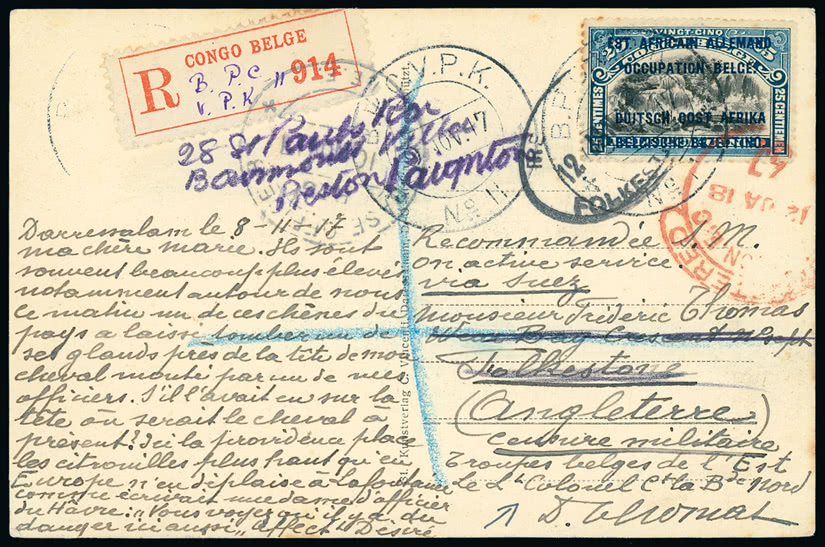 CONGO BELGE
R
B.P.C
V.P.K II
914
V.P.K.
NOV.17
No II
VINGT-CINQ
EST AFRICAIN ALLEMAND
OCCUPATION BELGE.
DUITSCH OOST AFRIKA
BELGISCHE BEZETTING
25 CENTIMES
25 CENTIEMEN
FOLKEST
12 JA 18
28 St Pauls
Preston Paignton
Daressalam le 8-11-17
ma chère marie. Ils sont
souvent beaucoup plus élevés
notamment autour de nous
ce matin un de ces chênes du
pays a laissé tomber un de
ses glands près de la tête de mon
cheval monté par un de nos
officiers. S'il l'avait eu sur la
tête où serait le cheval à
présent? Ici la providence place
les citrouilles plus haut qu'en
Europe n'en déplaise à Lafontaine
comme écrivait une dame d'officier
du Hâvre: "Vous voyez qu'il y a du
danger ici aussi" affect Désiré
Recommandée S.M.
on active service.
via Suez
Monsieur Fréderic Thomas
Crescent
Folkestone
(Angleterre)
censure militaire
Troupes belges de l'Est
Le Lt Colonel Ct la Bde Nord
D. Thomas
Kunstverlag C. Vincenti, Daressalam